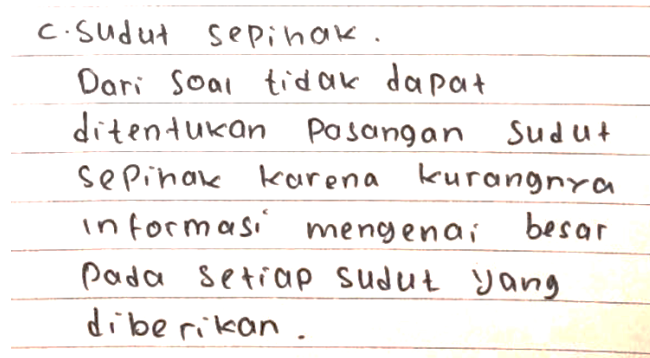 c. Sudut sepihak.
Dari soal tidak dapat
ditentukan pasangan sudut
sepihak karena kurangnya
informasi mengenai besar
pada setiap sudut yang
diberikan.